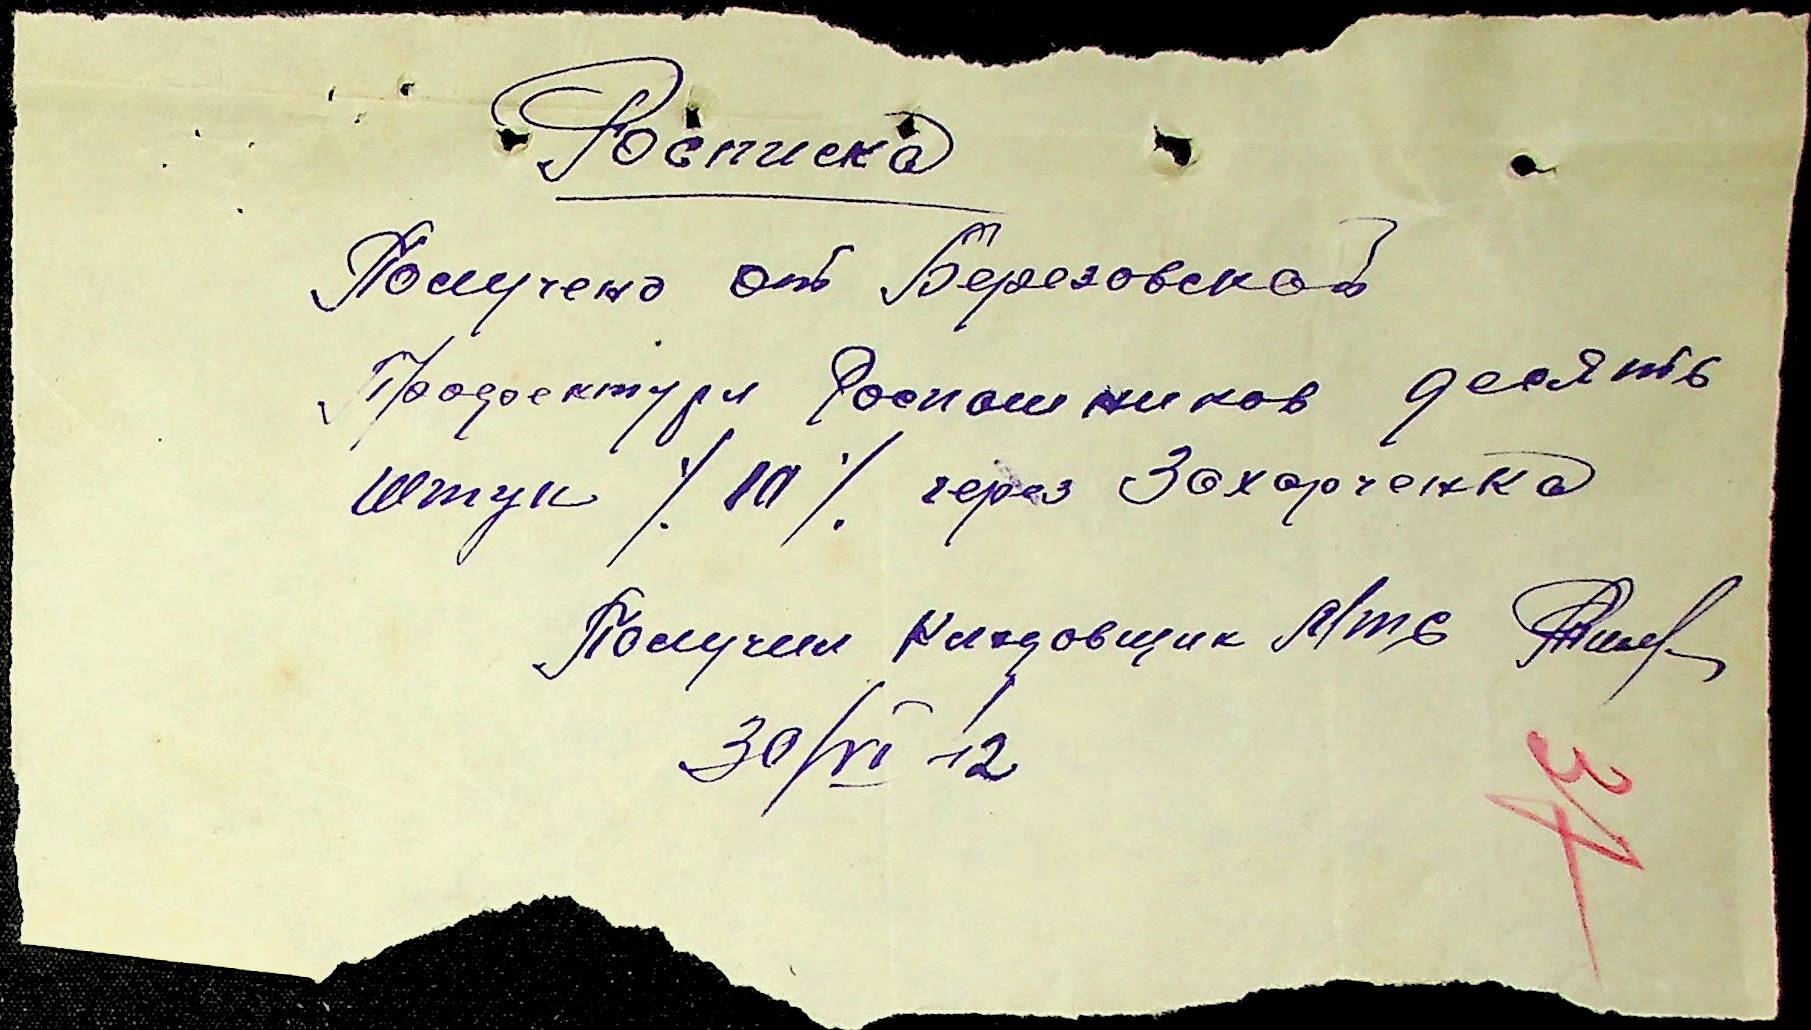 Росписка
Получено от Березовской
Префектури Роспашников десять
штук /. 10 /. через Захарченка
Получил Кладовщик Мтс
30/VI 12
37